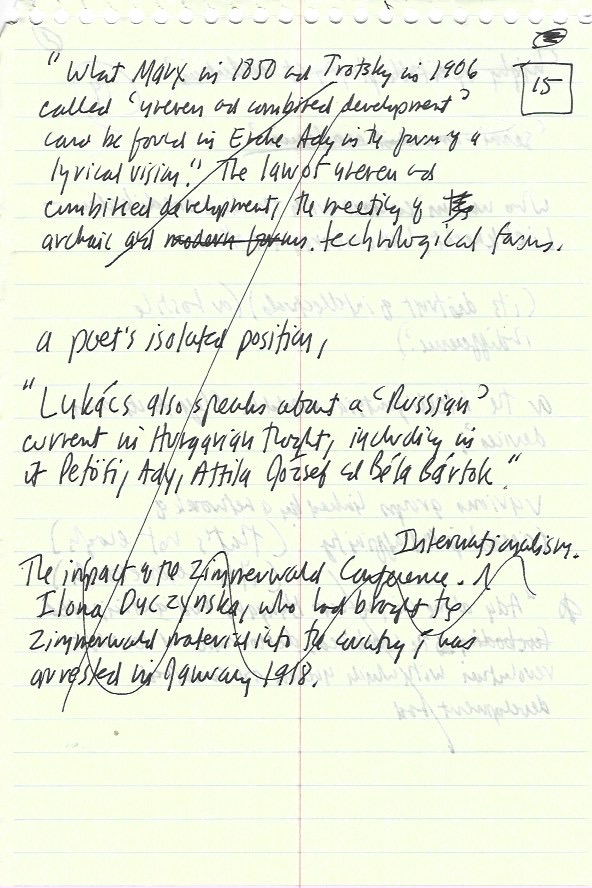 15
"What Marx in 1850 and Trotsky in 1906
called 'uneven and combined development'
can be found in Endre Ady in the form of a
lyrical vision." The law of uneven and
combined development, the meeting of
archaic and modern forms. technological forms.
a poet's isolated position,
"Lukács also speaks about a 'Russian'
current in Hungarian thought, including in
it Petöfi, Ady, Attila József and Béla Bártok."
Internationalism.
The impact of the Zimmerwald Conference.
Ilona Duczynska, who had brought the
Zimmerwald material into the country, was
arrested in January 1918.